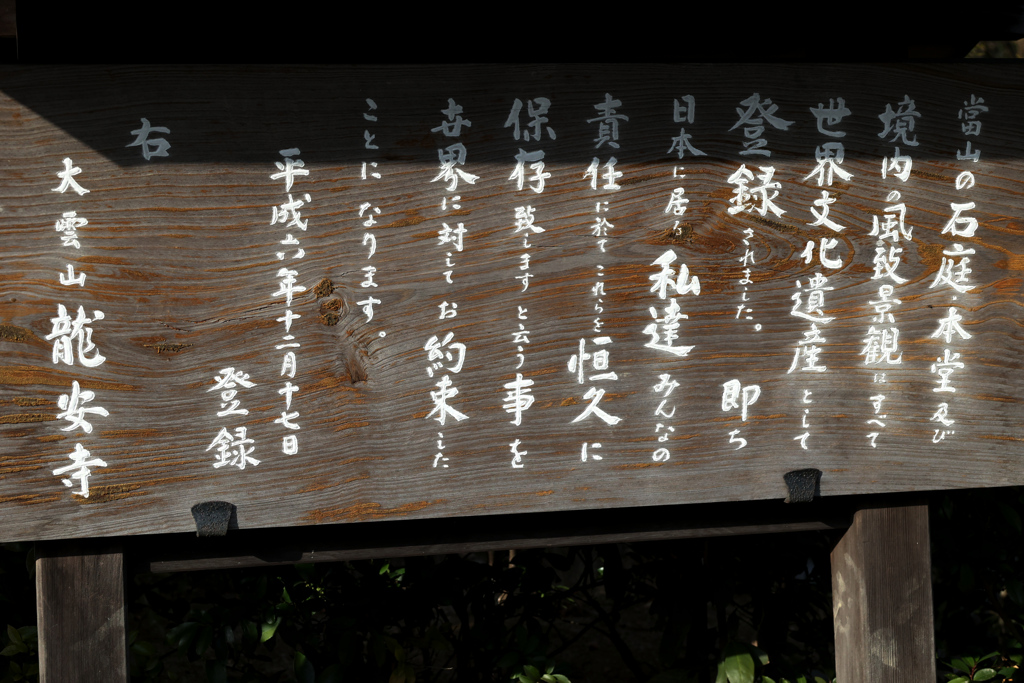 當山の石庭・本堂及び
境内の風致景観はすべて
世界文化遺産として
登録されました。即ち
日本に居る私達みんなの
責任に於てこれらを恒久に
保存致しますと云う事を
世界に対してお約束した
ことになります。
平成六年十二月十七日
登録
右
大雲山龍安寺